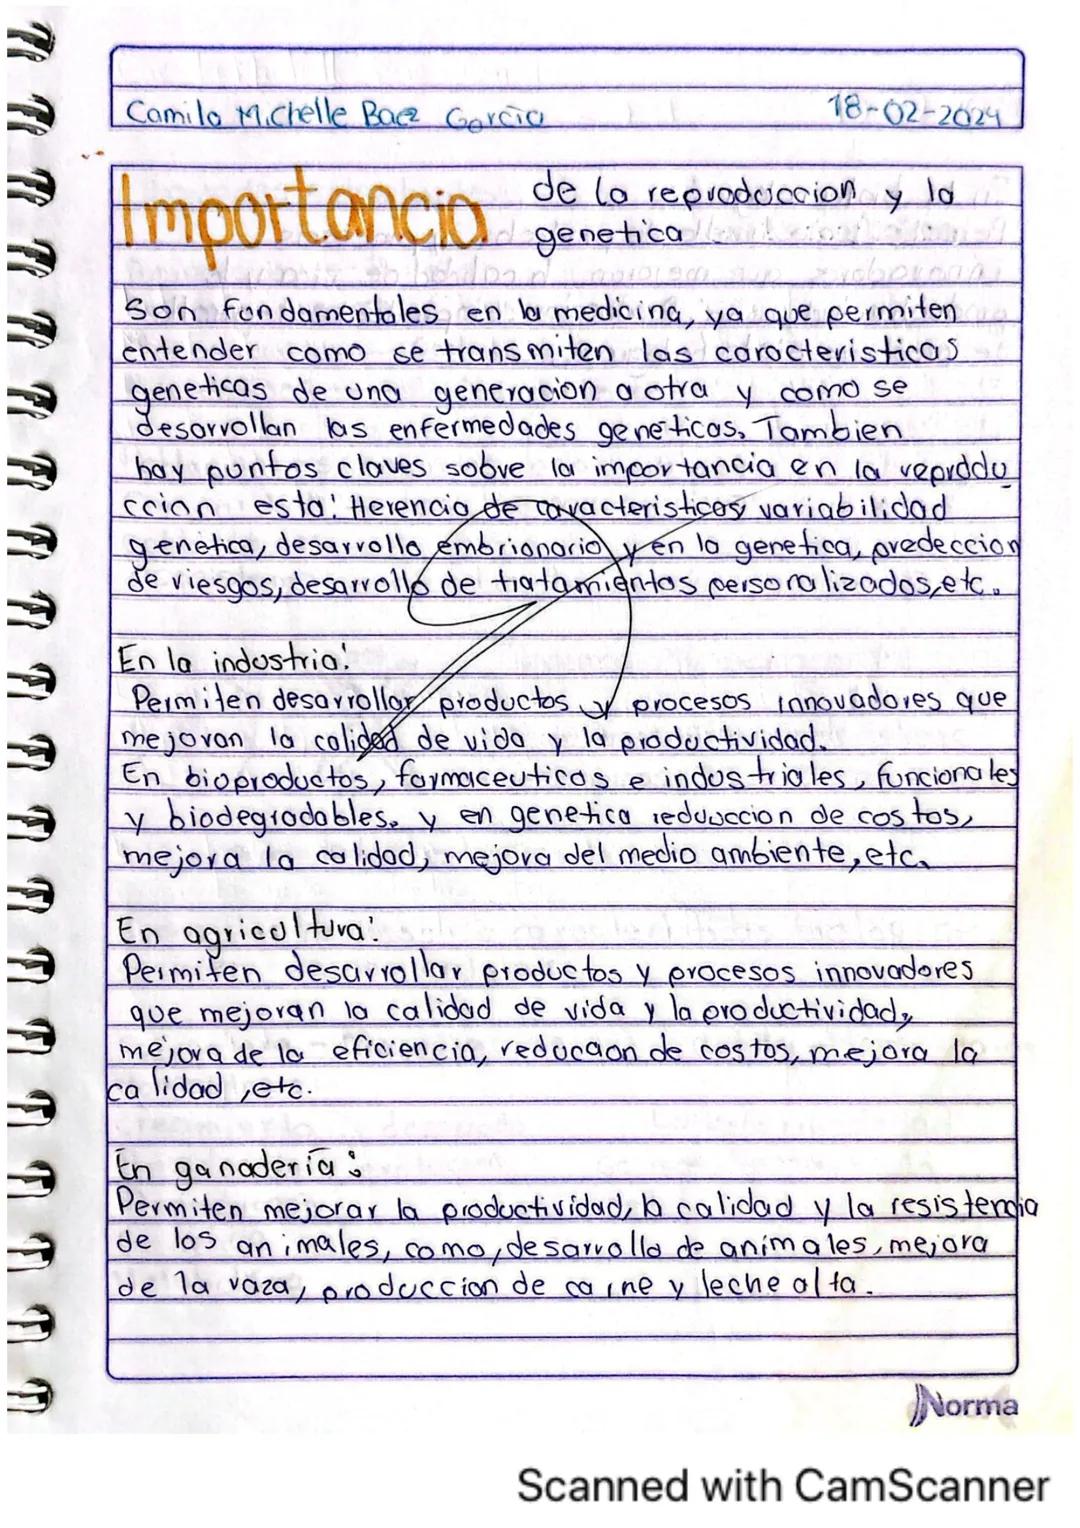 Camila Michelle Baez García
18-02-2024
Importancia de la reproduccion y la
genetica
Son fundamentales en la medicina, ya que permiten
entender como se transmiten las caracteristicas
geneticas de una generacion a otra y como se
desarrollan las enfermedades geneticas. Tambien
hay puntos claves sobre la importancia en la reprodu
ccion esta: Herencia de caracteristicas, variabilidad
genetica, desarrollo embrionario y en la genetica, predeccion
de riesgos, desarrollo de tratamientos personalizados, etc.
En la industria:
Permiten desarrollar productos y procesos innovadores que
mejoran la calidad de vida y la productividad.
En bioproductos, farmaceuticos e industriales, funcionales
y biodegradables. y en genetica reduuccion de costos,
mejora la calidad, mejora del medio ambiente, etc.
En agricultura:
Permiten desarrollar productos y procesos innovadores
que mejoran la calidad de vida y la productividad,
mejora de la eficiencia, reduccion de costos, mejora la
calidad, etc.
En ganadería:
Permiten mejorar la productividad, la calidad y la resistencia
de los animales, como, desarrollo de animales, mejora
de la raza, produccion de carne y leche alta.
Norma
Scanned with CamScanner